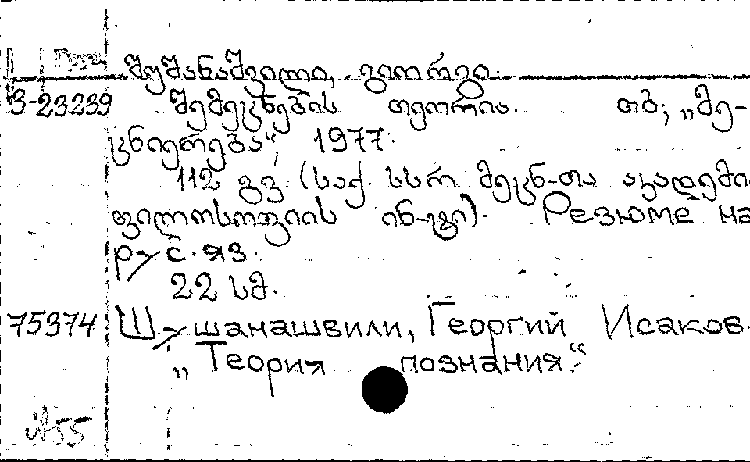 შუშანაშვილი, გიორგი
3-23239 შემეცნების თეორია. თბ; „მე-
ცნიერება“, 1977.
112 გვ (საქ. სსრ მეცნ-თა აკადემი
ფილოსოფიის ინ-ტი). Резюме на
рус. яз.
22 სმ.
75374 Шушанашвили, Георгий Исаков.
„Теория познания.“